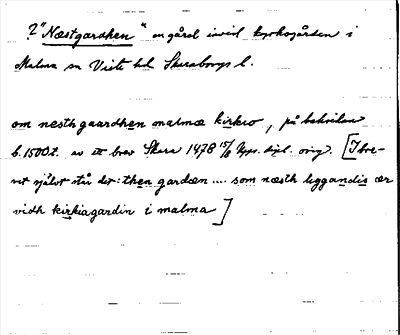 ?"Næstgardhen" en gård invid kyrkogården i
Malma sn Viste hd Skaraborgs l.
om nesth gaardhen malmæ kirkio, på baksidan
b. 1500 t. av ett brev Skara 1478 15/8 Upps. dipl. orig. [I bre-
vet självt står det: then garden .... som næsth liggandis ær
vidh kirkiagardin i malma]